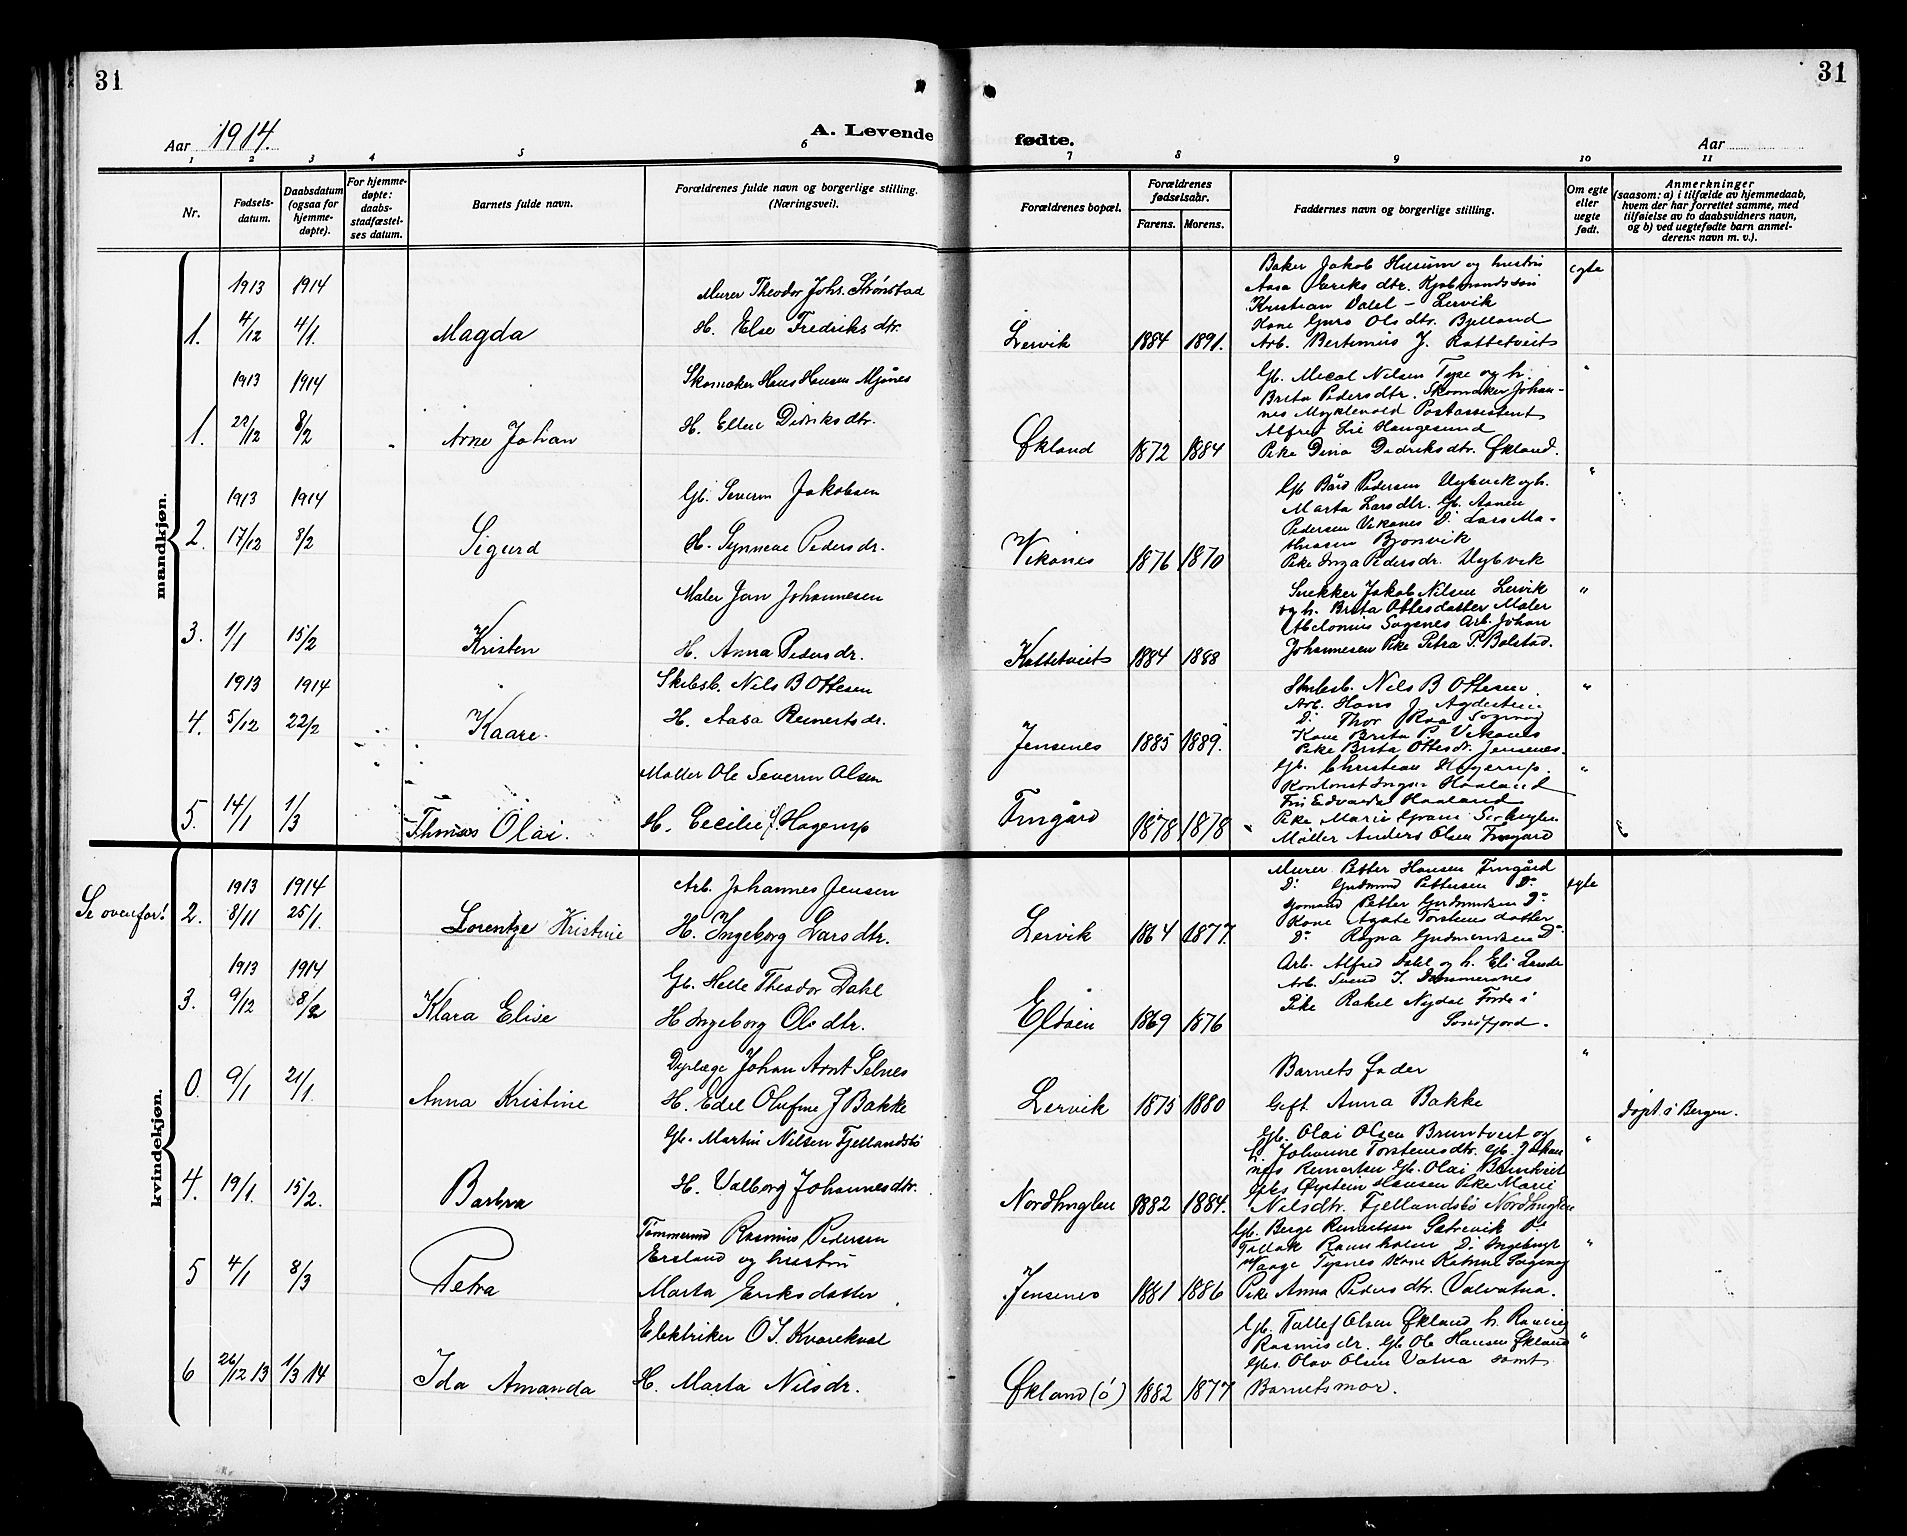 31
31
Aar 1914.
A. Levende
fødte.
Aar
1 2 3 4 5 6 7 8 9 10 11
Nr.
Fødsels-
datum.
Daabsdatum
(ogsaa for
hjemme-
døpte).
For hjemme-
døpte:
daabs-
stadfæstel-
ses datum.
Barnets fulde navn.
Forældrenes fulde navn og borgerlige stilling.
(Næringsvei).
Forældrenes bopæl.
Forældrenes
fødselsaar.
Farens. Morens.
Faddernes navn og borgerlige stilling.
Om egte
eller
uegte
født.
Anmerkninger
(saasom: a) i tilfælde av hjemmedaab,
hvem der har forrettet samme, med
tilføielse av to daabsvidners navn,
og b) ved uegtefødte barn anmel-
derens navn m. v.).
mandkjøn.
1913 1914
1. 4/12 4/1. Magda
Murer Theodor Johs. Strønstad
H. Else Fredriksdtr.
Lervik 1884 1891.
Baker Jakob Husum og hustru
Kristian Valel - Lervik
Kone Guro Olsdtr. Bjelland
Arb. Bertinius J. Kattetveits
egte
1913 1914
1. 22/12 8/2 Arne Johan
Skomaker Hans Hansen Mjånes
H. Ellen Didriksdtr.
Økland 1872 1884
Gb. Mical Nilsen Tyse og h.
Brita Pedersdtr. Skomaker Johan-
nes Myklevold Postassistent
Alfred Lie Haugesund
Pike Dina Dedriksdtr. Økland.
"
1913 1914
2. 17/12 8/2 Sigurd
Gb. Severin Jakobsen
H. Synneve Pedersdr.
Vikanes 1876 1870
Gb Bård Pedersen
Marta Larsdtr. Gb.
Pedersen Vikanes D. Lars Ma-
thiasen Bjonvik
Pike Inga Pedersdr.
"
3. 1/1 15/2 Kristen
Maler Jon Johannesen
H. Anna Pedersdr.
Kattetveits 1884 1888
Snekker Jakob Nilsen Lervik
og h. Brita Ottesdatter Maler
Abelonius Sagenes Arb. Johan
Johannesen Pike Petra P. Bolstad.
"
1913 1914
4. 5/12 22/2 Kaare.
Skibsb. Nils B Ottesen
H. Aasa Reinertsdr.
Jensenes 1885 1889.
Skibsb. Nils B Ottesen.
Arb. Hans J
D: Thor
Kone Brita P. Vikanes
Pike Brita Ottesdr. Jensenes.
"
5. 14/1 1/3 Thomas Olai.
Møller Ole Severin Olsen
H. Cecilie f. Hagerup
Frugård 1878 1878
Gb. Christian Hagerup.
Kontorist Ingvar Haaland
Frk Edvarda Haaland
Pike Marie Gram
Møller Anders Olsen Frugård
"
kvindekjøn.
Se ovenfor!
1913 1914
2. 8/11 25/1. Lorentze Kristine
Arb. Johannes Jensen
H. Ingeborg Larsdtr.
Lervik 1864 1877.
Murer Petter Hansen Frugård
D: Gudmund Pettersen D:
Sjømand Petter Gudmundsen D:
Kone Agate Torstensdatter
D: Ragna Gudmundsen D:
egte
1913 1914
3. 9/12 8/2 Klara Elise
Gb. Helle Theodor Dahl
H Ingeborg Olsdtr.
Eldøen 1869 1876
Arb. Alfred Dahl og h. Eli Lande
Arb. Svend J. Dommersnes
Pike Rakel Nydal Førde i
Søndfjord.
0. 9/1 21/1. Anna Kristine
Dyrlæge Johan Arnt Selnes
H. Edel Olufine J Bakke
Lervik 1875 1880
Barnets fader
Gift Anna Bakke
"
døpt i Bergen.
4. 19/1. 15/2. Barbra
Gb. Martin Nilsen Fjellandsbø
H. Valborg Johannesdtr.
Nordhuglen 1882 1884.
Gb. Olai Olsen Bruntveit og
h. Johanne Torstensdtr. Gb. Johan
nes Reinertsen Gb. Olai Bruntveit
Gks Øystein Hansen Pike Marie
Nilsdtr. Fjellandsbø Nordhuglen
"
5 4/1 8/3 Petra
Tømmermd Rasmus Pedersen
Ersland og hustru
Marta Eriksdatter
Jensenes 1881 1886
Gb. Berge Reinertsen Sætrevik D:
Tollak Ravnholm D: Ingebrigt
Vaage Tysnes Kone Katrine
Pike Anna Pedersdtr. Valvatna.
"
6 26/12 13 1/3 14 Ida Amanda
Elektriker O J. Kvarekval
H. Marta Nilsdr.
Økland (ø) 1882 1877
Gb. Tollef Olsen Økland h. Ranveig
Rasmusdr. Gb. Ole Hansen Økland
Gbs. Olav Olsen Vatna samt
Barnets mor.
"